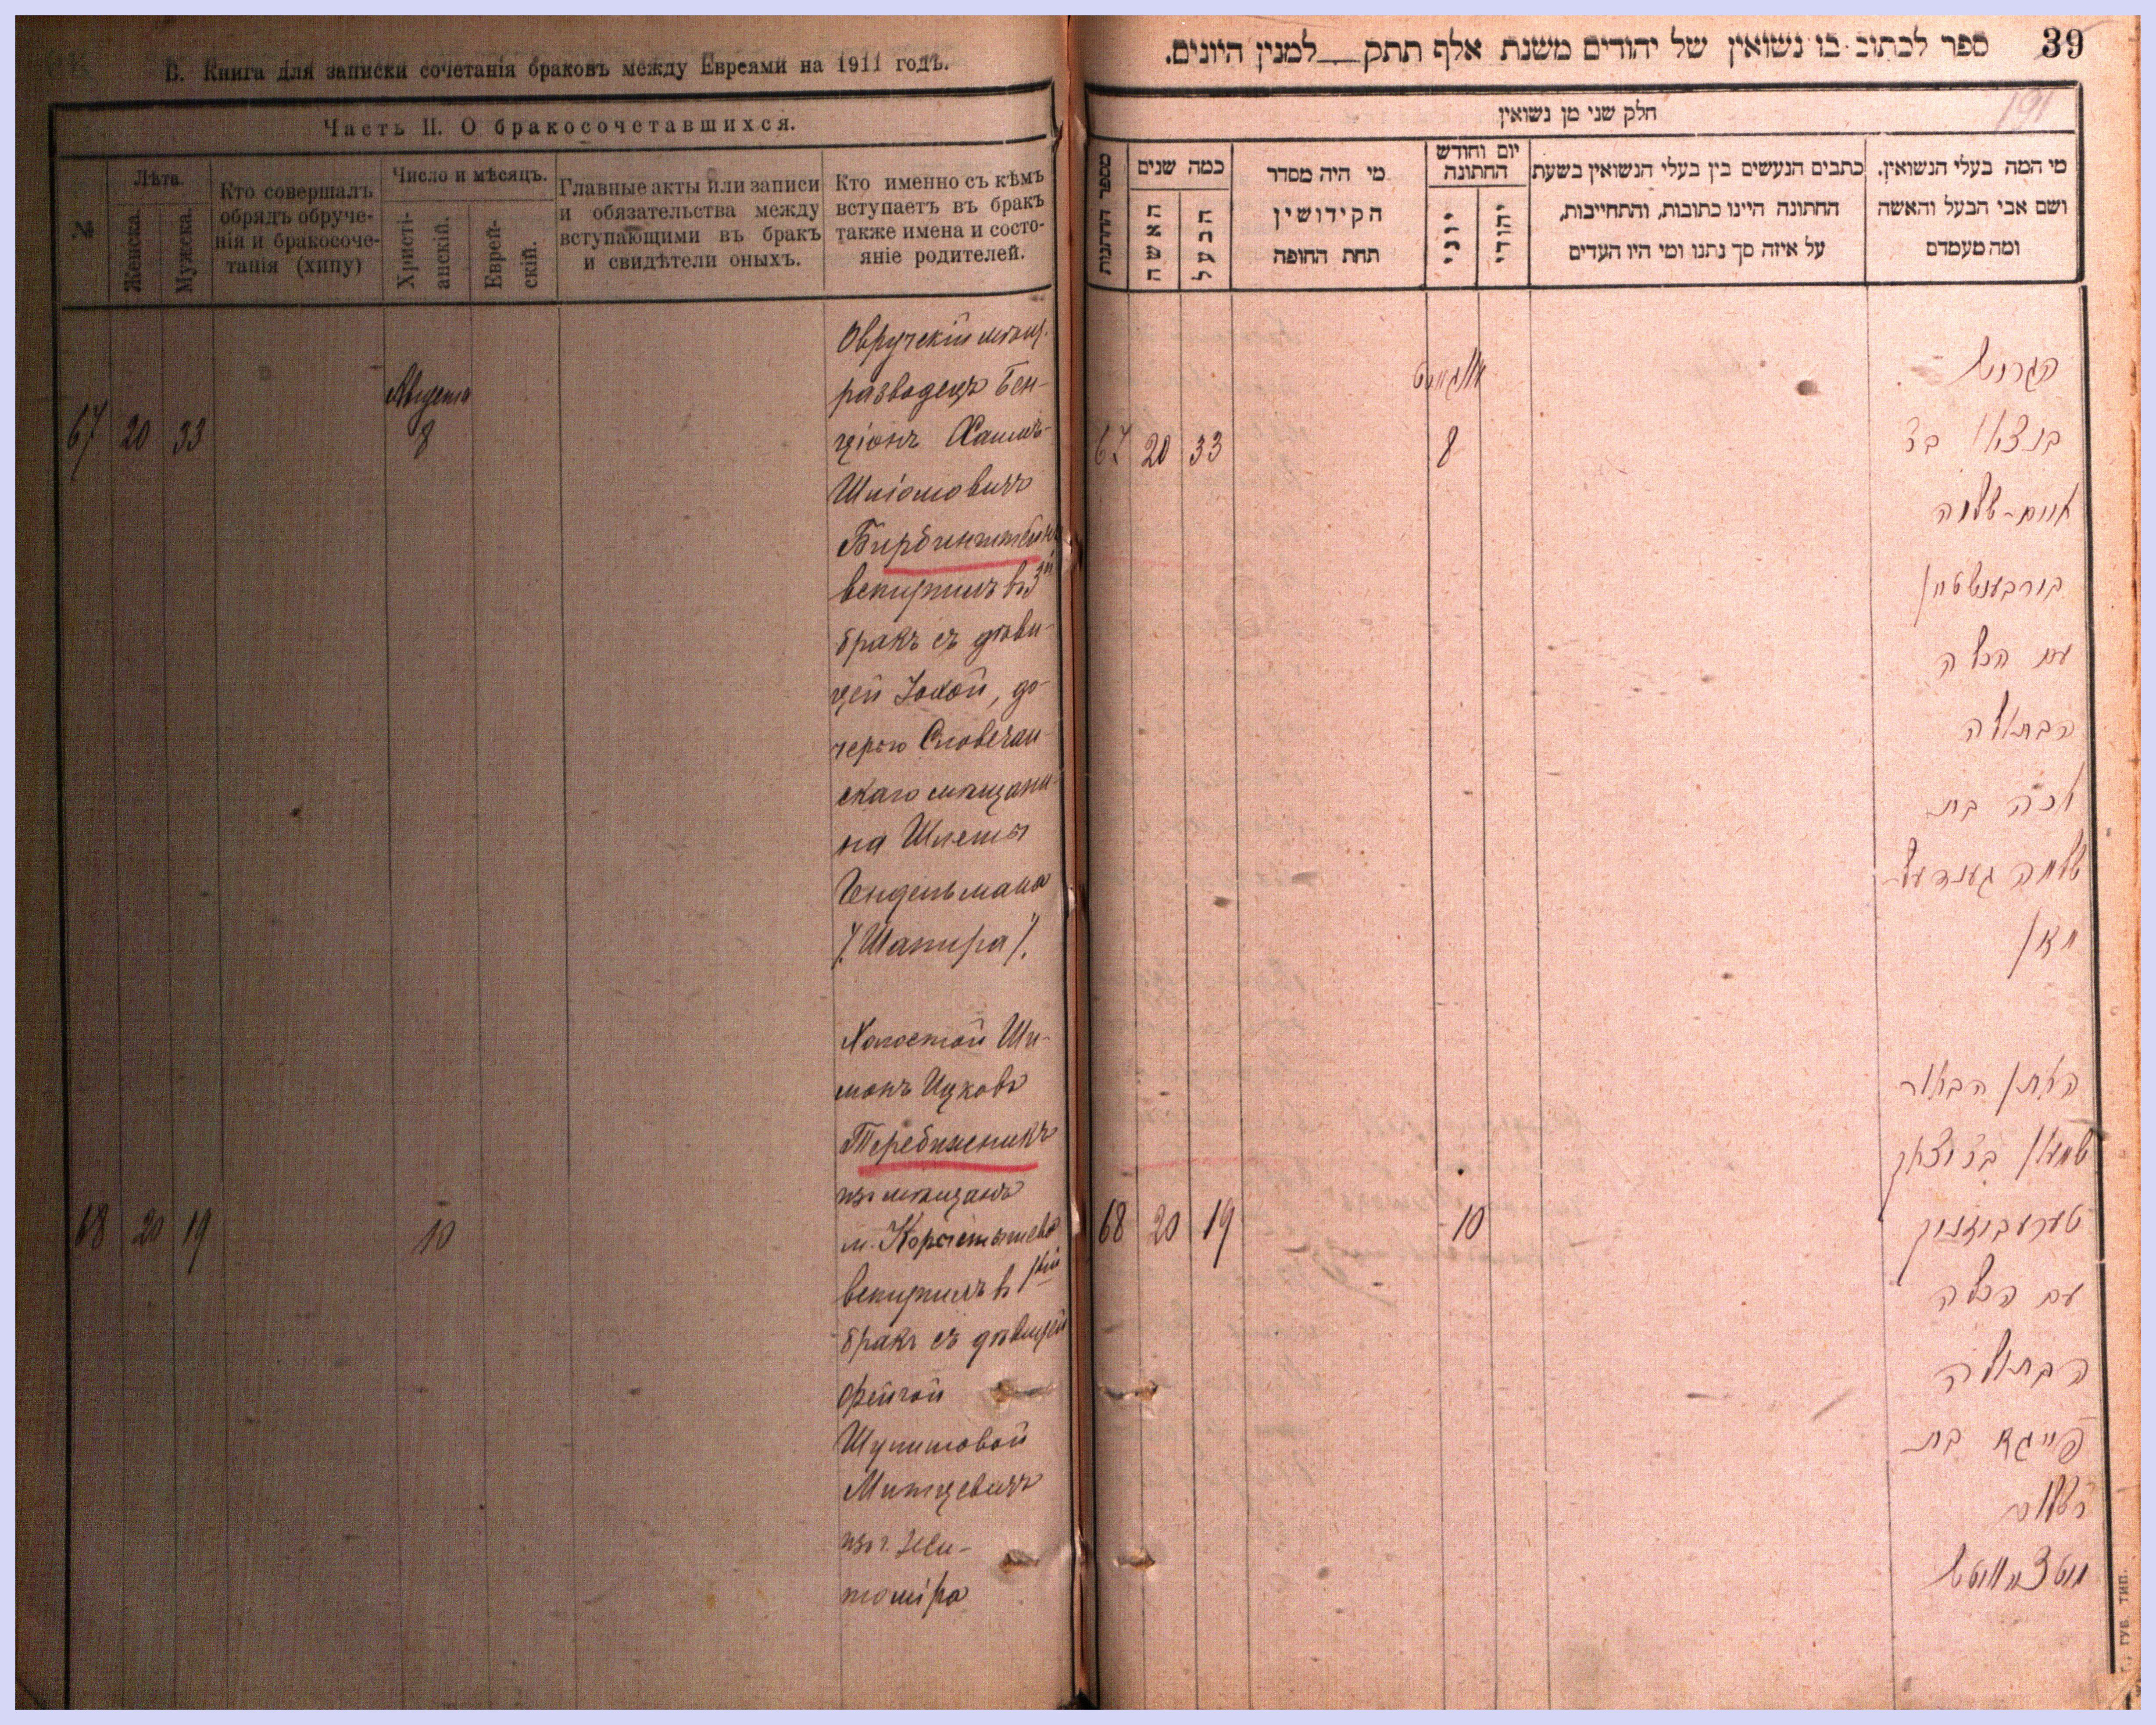 В. Книга для записки сочетанія браковъ между Евреями на 1911 годъ.
Часть II. О бракосочетавшихся.
№
Лѣта.
Женска.
Мужска.
Кто совершалъ
обрядъ обруче-
нія и бракосоче-
танія (хипу)
Число и мѣсяцъ.
Христі-
анскій.
Еврей-
скій.
Главные акты или записи
и обязательства между
вступающими въ бракъ
и свидѣтели оныхъ.
Кто именно съ кѣмъ
вступаетъ въ бракъ
также имена и состо-
яніе родителей.
67 20 33
Августа
8
Овручскій мѣщ.
разводецъ Бен-
ціонъ Хаимъ-
Шліомовичъ
Бирбинштейнъ
вступилъ въ 3й
бракъ съ дѣви-
цей
, до-
черью Словечан-
скаго мѣщани-
на Шлемы
Гендельмана
/.Шапира/.
68 20 19
10
Холостой Ши-
монъ Ицковъ
Теребиженикъ
изъ мѣщанъ
м. Коростышева
вступилъ въ 1ый
бракъ съ дѣвицей
Фейгой
Шулимовой
изъ г. Жи-
томіра
39
ספר לכתוב בו נשואין של יהודים משנת אלף תתק___למנין היונים.
191
חלק שני מן נשואין
מספר החתנות
כמה שנים
האשה
הבעל
מי היה מסדר
הקידושין
תחת החופה
יום וחודש
החתונה
יוני
יהודי
כתבים הנעשים בין בעלי הנשואין בשעת
החתונה היינו כתובות, והתחייבות,
על איזה סך נתנו ומי היו העדים
מי המה בעלי הנשואין.
ושם אבי הבעל והאשה
ומה מעמדם
67 20 33
אווגוסט
8
הגרוש
בנציון בר
חיים-שלמה
בורבענשטיין
עם הכלה
הבתולה
בת
שלמה גענדעל-
מאן
68 20 19
10
החתן הבחור
שמעון בר יצחק
טערעבוזניק
עם הכלה
הבתולה
פייגא בת
ר' שלום
г., ГУБ. ТИП.